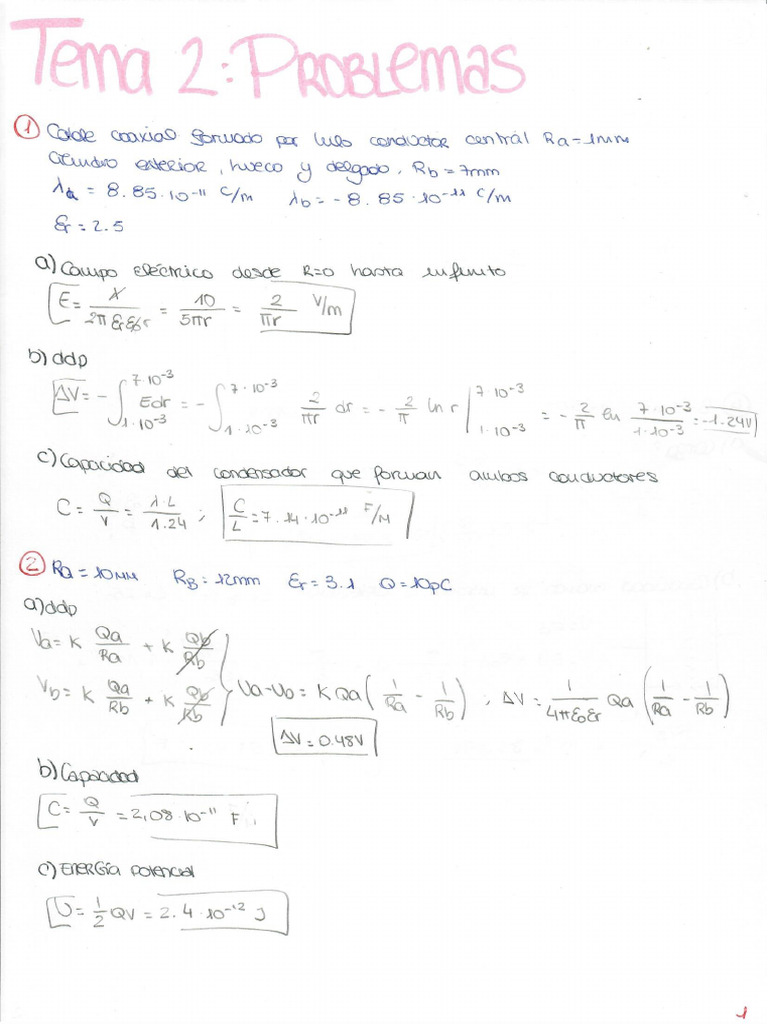 Tema 2: PROBLEMAS
① Cable coaxial formado por hilo conductor central Ra=1mm
Cilindro exterior, hueco y delgado, Rb=7mm
λa = 8.85·10⁻¹¹ C/m λb=-8.85·10⁻¹¹ C/m
Er=2.5
a) Campo eléctrico desde R=0 hasta infinito
E= λ/2π Er E0 r = 10/5πr = 2/πr V/m
b) ddp
ΔV=-∫_{1·10⁻³}^{7·10⁻³} Edr = -∫_{1·10⁻³}^{7·10⁻³} 2/πr dr = -2/π ln r |_{1·10⁻³}^{7·10⁻³} = -2/π ln 7·10⁻³/1·10⁻³ = -1.24V
c) Capacidad del condensador que forman ambos conductores
C= Q/V = λ·L/1.24 ; C/L = 7.14·10⁻¹¹ F/M
② Ra=10mm RB=12mm Er=3.1 Q=10pC
a) ddp
Va= K Qa/Ra + K Qb/Rb
Vb= K Qa/Rb + K Qb/Rb } Va-Vb = K Qa (1/Ra - 1/Rb) ; ΔV = 1/4πE0Er Qa (1/Ra - 1/Rb)
ΔV=0.48V
b) Capacidad
C= Q/V = 2,08·10⁻¹¹ F
c) ENERGÍA potencial
U= 1/2 QV = 2.4·10⁻¹² J
1